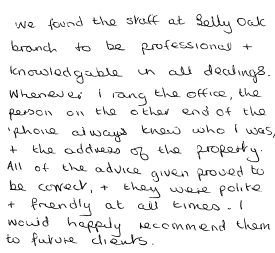 we found the staff at Selly Oak
branch to be professional +
knowledgable in all dealings.
Whenever i rang the office, the
person on the other end of the
'phone always knew who I was,
+ the address of the property.
All of the advice given proved to
be correct, + they were polite
+ friendly at all times. I
would happily recommend them
to future clients.